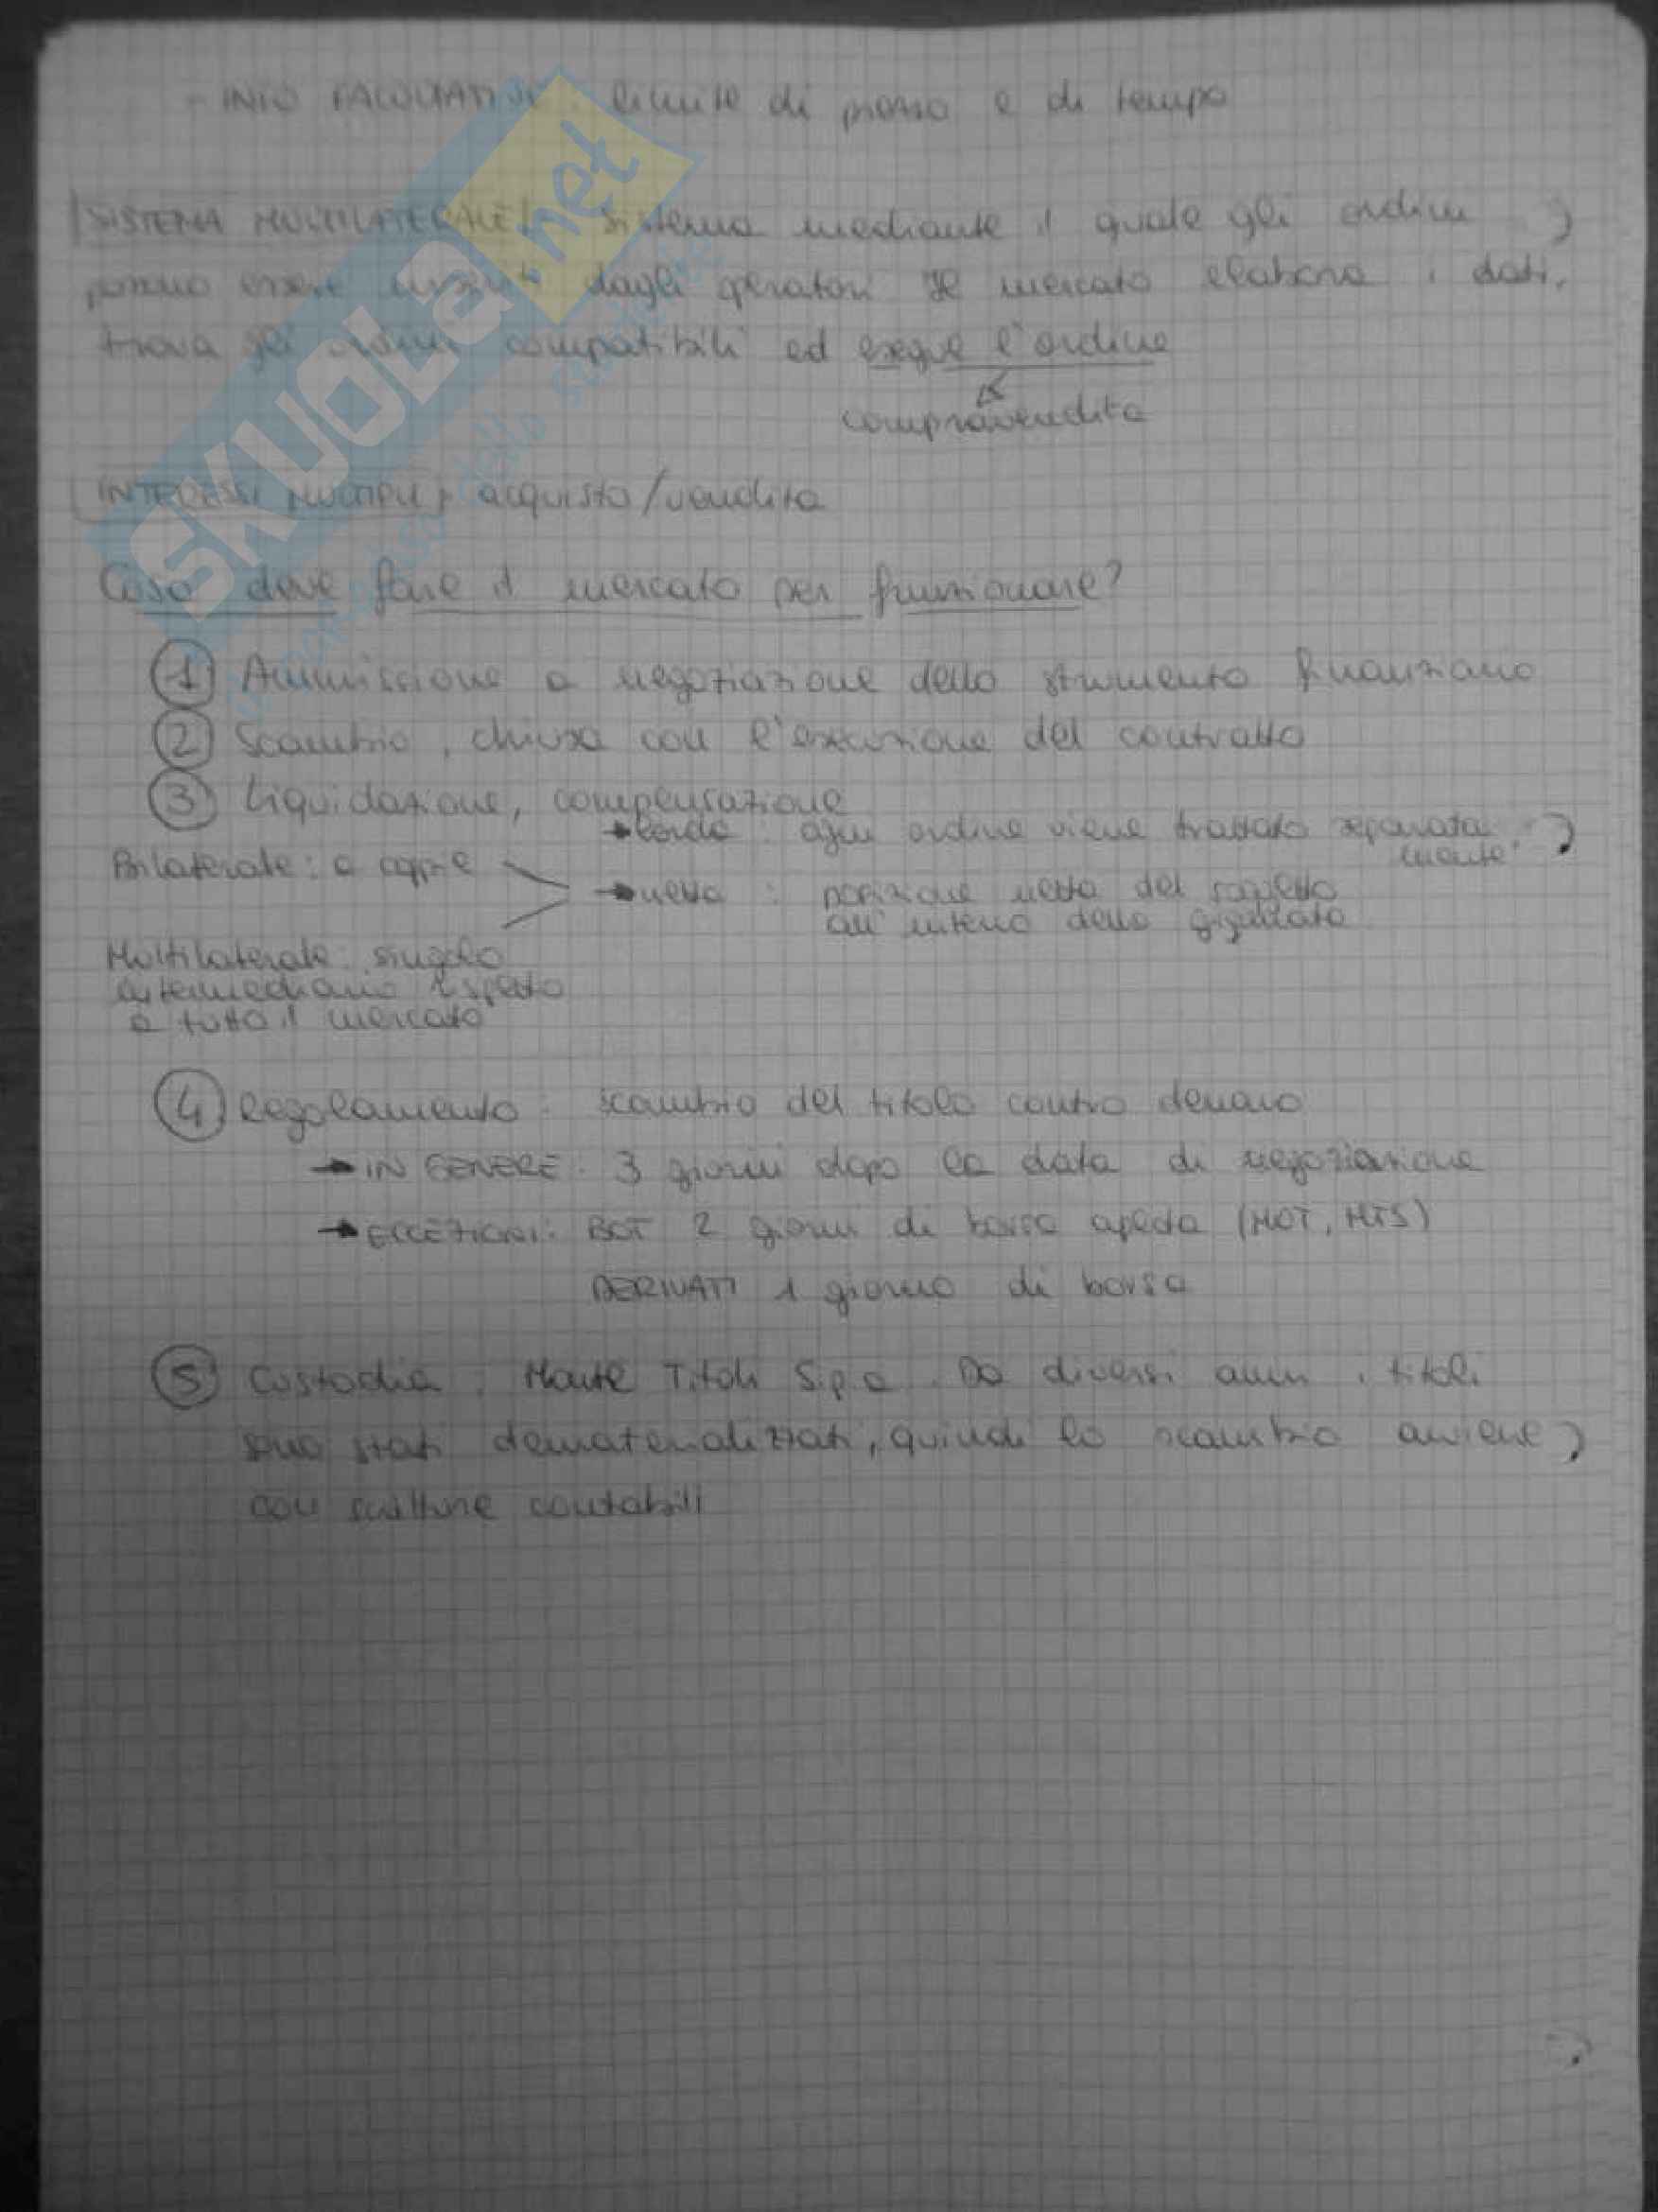 - INFO FACOLTATIVE: limite di prezzo e di tempo
SISTEMA MULTILATERALE: sistema mediante il quale gli ordini
possono essere inseriti dagli operatori. Il mercato elabora i dati,
trova gli ordini compatibili ed esegue l'ordine
compravendita
INTERESSI MULTIPLI: acquisto/vendita
Cosa deve fare il mercato per funzionare?
1 Ammissione a negoziazione dello strumento finanziario
2 Scambio, chiusa con l'esecuzione del contratto
3 Liquidazione, compensazione
→ lorda: ogni ordine viene trattato separata
mente
Bilaterale: a coppie
→ netta: posizione netta del soggetto
all'interno della giornata
Multilaterale: singolo
intermediario rispetto
a tutto il mercato
4 Regolamento: scambio del titolo contro denaro
→ IN GENERE: 3 giorni dopo la data di negoziazione
→ ECCEZIONI: BOT 2 giorni di borsa aperta (MOT, MTS)
DERIVATI 1 giorno di borsa
5 Custodia: Monte Titoli S.p.a. Da diversi anni i titoli
sono stati dematerializzati, quindi lo scambio avviene
con scritture contabili
SKUOLA.net